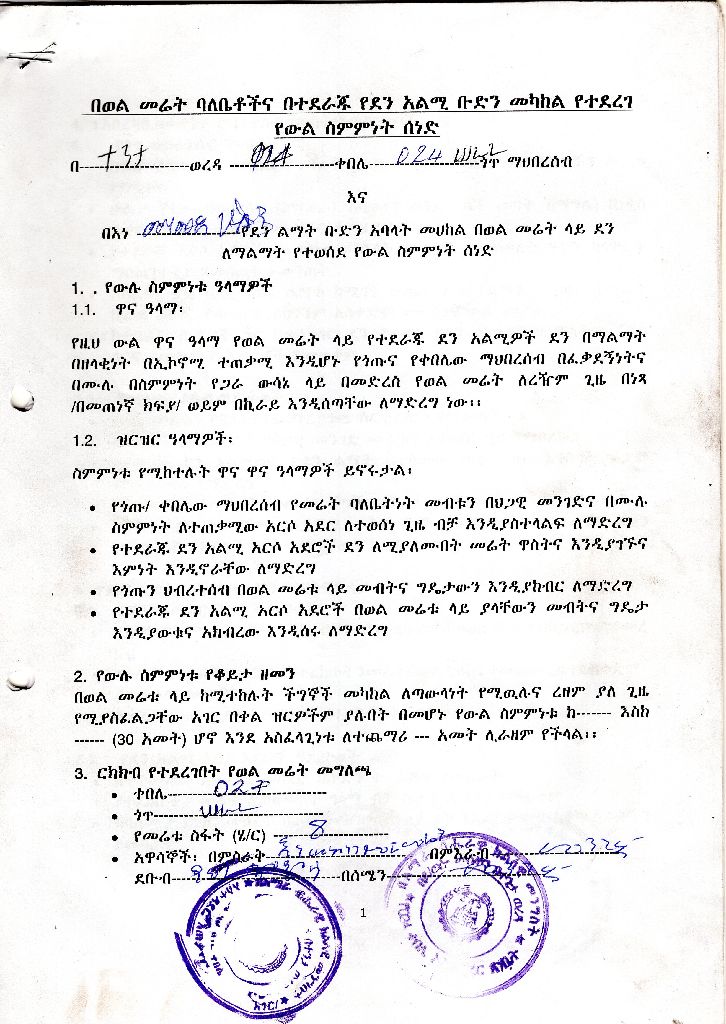 በወል መሬት ባለቤቶችና በተደራጁ የደን አልሚ ቡድን መካከል የተደረገ
የውል ስምምነት ሰነድ
በ ወረዳ ቀበሌ 024 ጎጥ ማህበረሰብ
እና
በእነ የደን ልማት ቡድን አባላት መሀከል በወል መሬት ላይ ደን
ለማልማት የተወሰደ የውል ስምምነት ሰነድ
1. . የውሉ ስምምነቱ ዓላማዎች
1.1. ዋና ዓላማ፡
የዚህ ውል ዋና ዓላማ የወል መሬት ላይ የተደራጁ ደን አልሚዎች ደን በማልማት
በዘላቂነት በኢኮኖሚ ተጠቃሚ እንዲሆኑ የጎጡና የቀበሌው ማህበረሰብ በፈቃደኝነትና
በሙሉ በስምምነት የጋራ ውሳኔ ላይ በመድረስ የወል መሬት ለረዥም ጊዜ በነጻ
/በመጠነኛ ክፍያ/ ወይም በኪራይ እንዲሰጣቸው ለማድረግ ነው፡፡
1.2. ዝርዝር ዓላማዎች፡
ስምምነቱ የሚከተሉት ዋና ዋና ዓላማዎች ይኖሩታል፡
• የጎጡ/ ቀበሌው ማህበረሰብ የመሬት ባለቤትነት መብቱን በህጋዊ መንገድና በሙሉ
ስምምነት ለተጠቃሚው አርሶ አደር ለተወሰነ ጊዜ ብቻ እንዲያስተላልፍ ለማድረግ
• የተደራጁ ደን አልሚ አርሶ አደሮች ደን ለሚያለሙበት መሬት ዋስትና እንዲያገኙና
እምነት እንዲኖራቸው ለማድረግ
• የጎጡን ህብረተሰብ በወል መሬቱ ላይ መብትና ግዴታውን እንዲያከብር ለማድረግ
• የተደራጁ ደን አልሚ አርሶ አደሮች በወል መሬቱ ላይ ያላቸውን መብትና ግዴታ
እንዲያውቁና አክብረው እንዲሰሩ ለማድረግ
2. የውሉ ስምምነቱ የቆይታ ዘመን
በወል መሬቱ ላይ ከሚተከሉት ችግኞች መካከል ለጣውላነት የሚዉሉና ረዘም ያለ ጊዜ
የሚያስፈልጋቸው አገር በቀል ዝርዎችም ያሉበት በመሆኑ የውል ስምምነቱ ከ------- እስከ
------ (30 አመት) ሆኖ እንደ አስፈላጊነቱ ለተጨማሪ --- አመት ሊራዘም የችላል፡፡
3. ርክክብ የተደረገበት የወል መሬት መግለጫ
• ቀበሌ 027
• ጎጥ
• የመሬቱ ስፋት (ሄ/ር) 8
• አዋሳኞች፡ በምስራት በምእራብ
ደቡብ በሰሜን
1